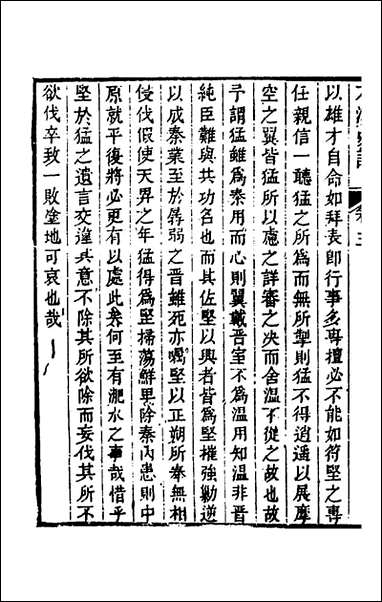 以雄才自命如拜表即行事多專擅必不能如符堅之專
任親信一聽猛之所為而無所掣則猛不得逍遥以展摩
空之翼皆猛所以慮之詳審之決而舍温不從之故也故
予謂猛雖為秦用而心則翼戴晉室不為温用知温非晉
純臣難與共功名也而其佐堅以興者皆為堅摧強勦逆
以成秦業至於孱弱之晉雖死亦囑堅以正朔所奉無相
侵伐假使天畀之年猛得為堅掃蕩鮮卑除秦内患則中
原就平後將必更有以處此矣何至有淝水之事哉惜乎
堅於猛之遺言交違其意不除其所欲除而妄伐其所不
欲伐卒致一敗塗地可哀也哉